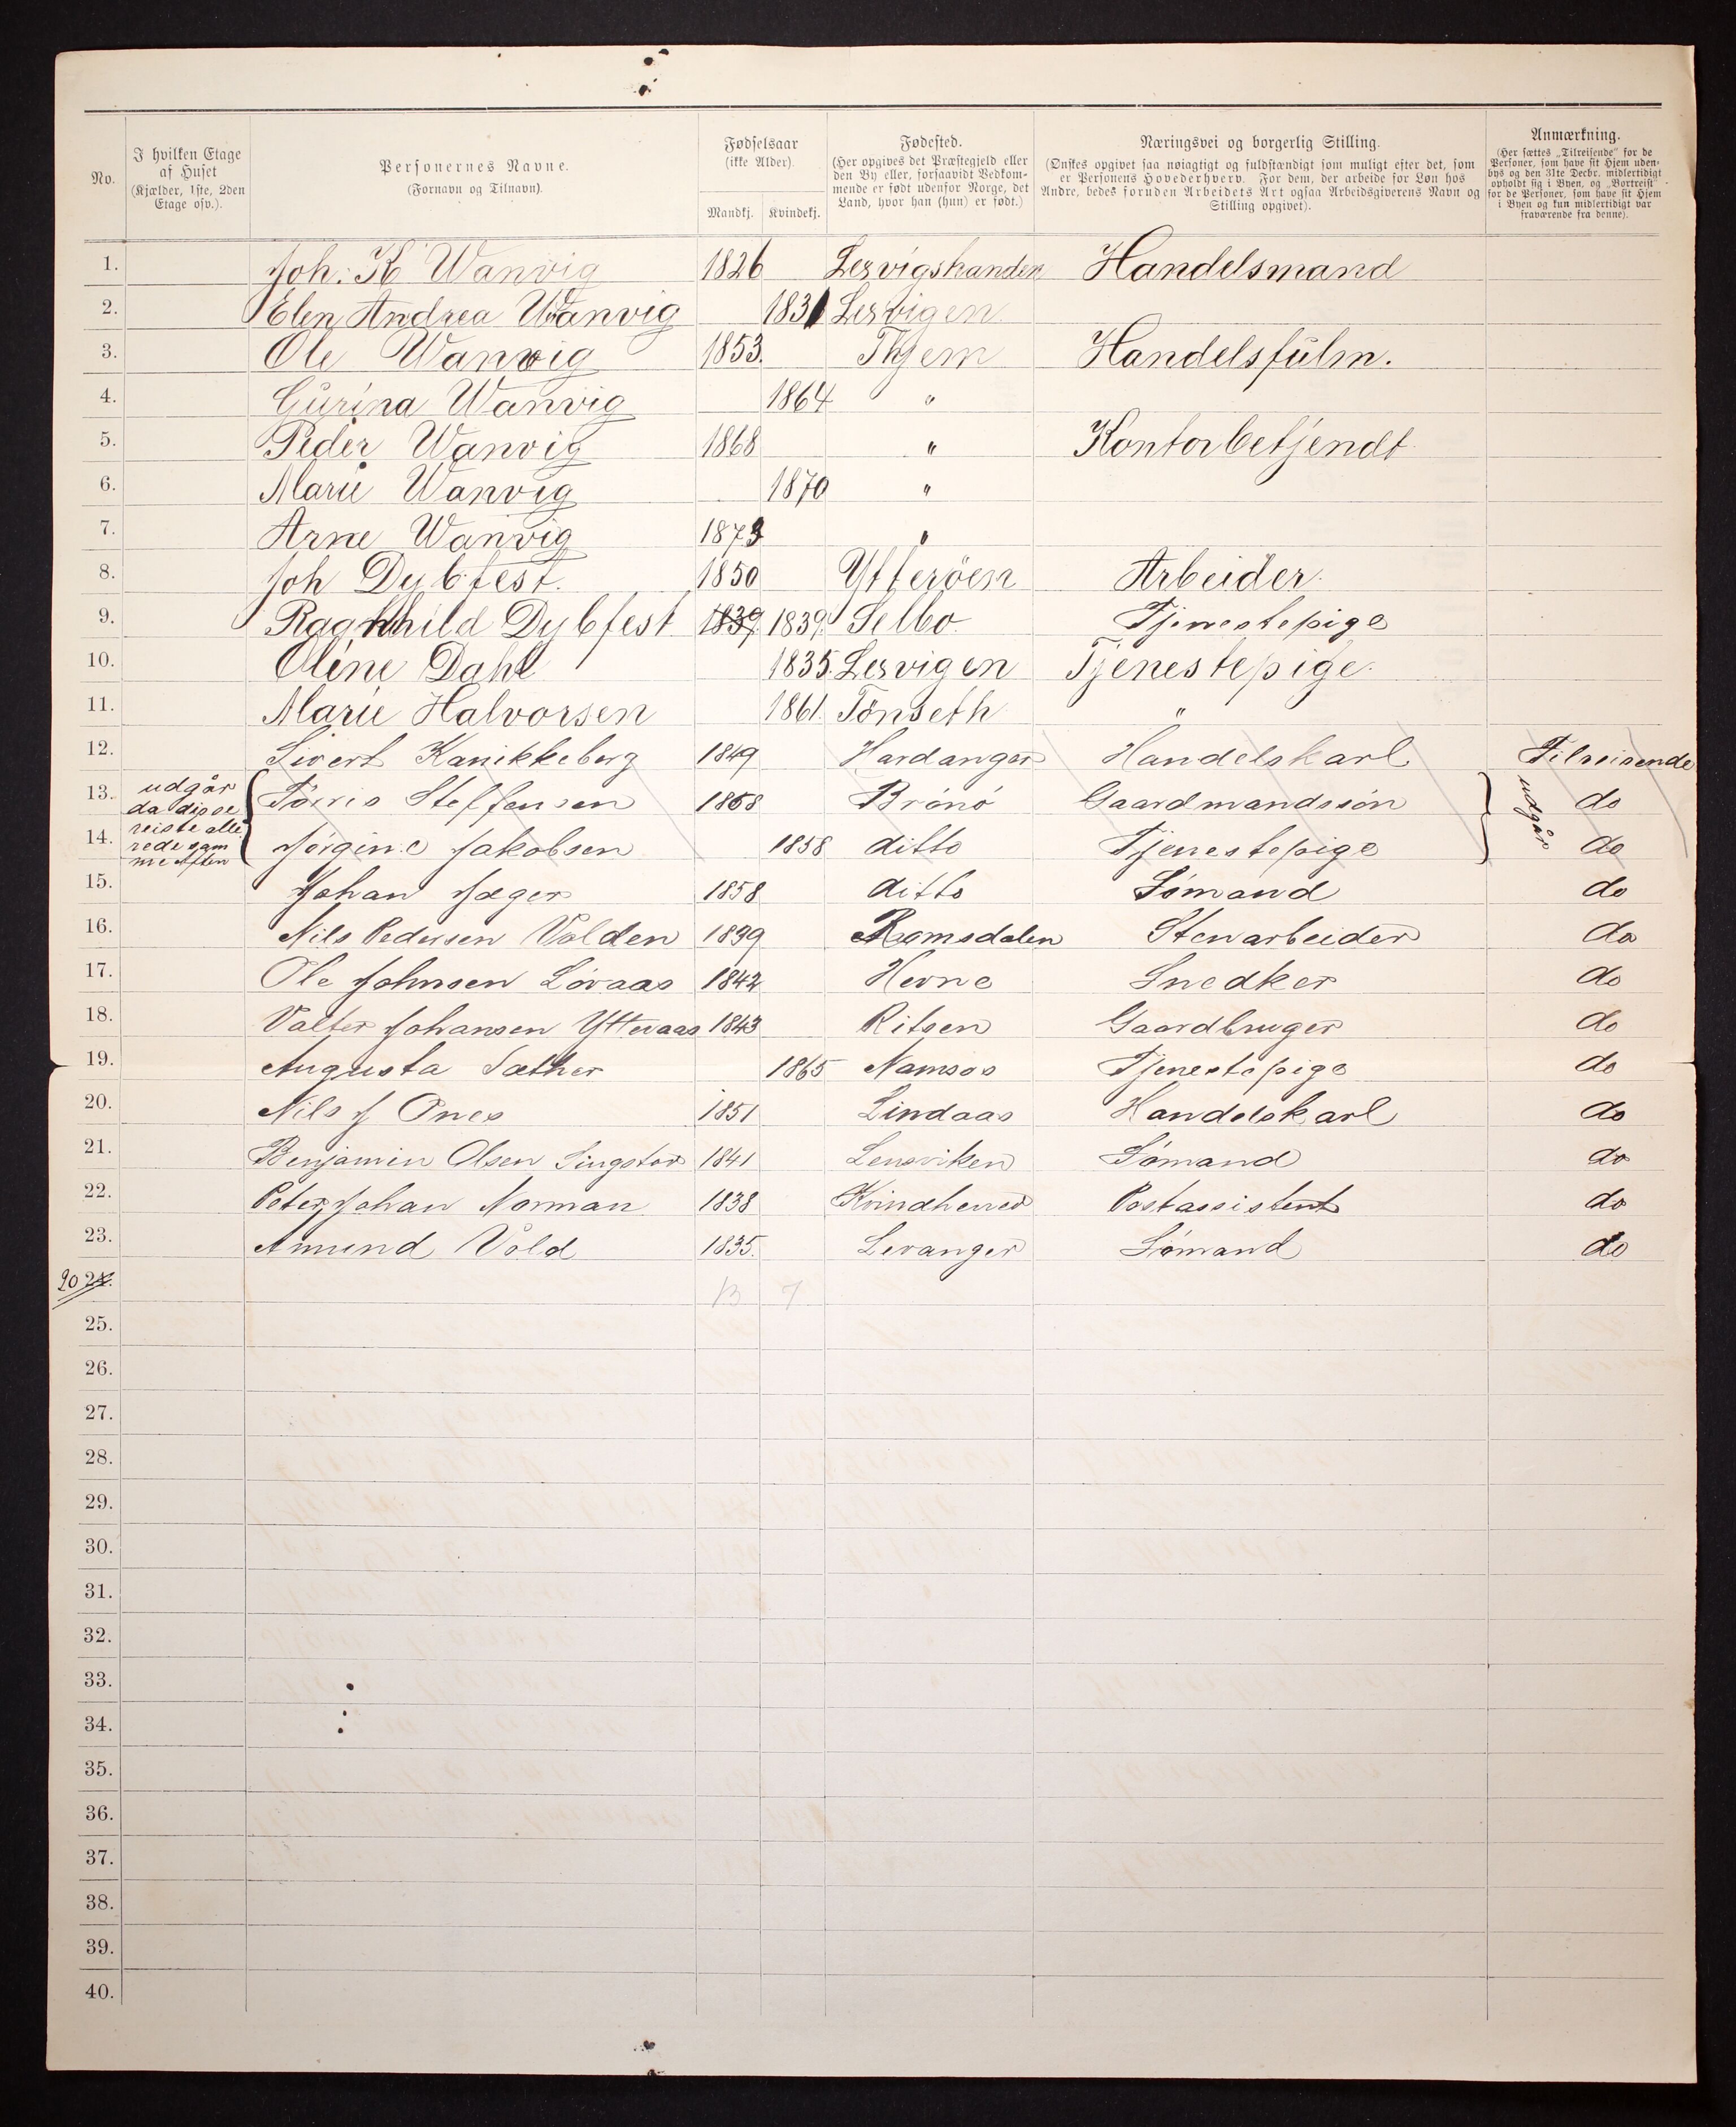 No.
I hvilken Etage
af Huset
(Kjælder, 1ste, 2den
Etage osv.).
Personernes Navne.
(Fornavn og Tilnavn).
Fødselsaar
(ikke Alder).
Mandkj. Kvindekj.
Fødested.
(Her opgives det Præstegjeld eller
den By eller, forsaavidt Vedkom-
mende er født udenfor Norge, det
Land, hvor han (hun) er født.)
Næringsvei og borgerlig Stilling.
(Ønskes opgivet saa nøiagtigt og fuldstændigt som muligt efter det, som
er Personens Hovederhverv. For dem, der arbeide for Løn hos
Andre, bedes foruden Arbeidets Art ogsaa Arbeidsgiverens Navn og
Stilling opgivet).
Anmærkning.
(Her sættes „Tilreisende“ for de
Personer, som have sit Hjem uden-
bys og den 31te Decbr. midlertidigt
opholdt sig i Byen, og „Bortreist“
for de Personer, som have sit Hjem
i Byen og kun midlertidigt var
fraværende fra denne).
1. Joh. K Wanvig 1826 Lexvigstranden Handelsmand
2. Elen Andrea Wanvig 1831 Lexvigen
3. Ole Wanvig 1853. Thjem Handelsfulm.
4. Gurina Wanvig 1864 "
5. Peder Wanvig 1868 " Kontorbetjendt
6. Marie Wanvig 1870 "
7. Arne Wanvig 1873 "
8. Joh Dybfest. 1850 Ytterøen Arbeider.
9. Ragnhild Dybfest 1839 1839. Selbo Tjenestepige
10. Oline Dahl 1835. Lexvigen Tjenestepige.
11. Marie Halvorsen 1861. Tønseth "
12. Sivert Kanikkeberg 1849 Hardanger Handelskarl Tilreisende
13. Tørris Steffensen 1868 Brønø Gaardmandssøn do
14. Jørgine Jakobsen 1858 ditto Tjenestepige do
udgår
da disse
reiste alle
rede sam
me Aften
udgår
15. Johan Jæger 1858 ditto Sømand do
16. Nils Pedersen Volden 1839 Romsdalen Stenarbeider do
17. Ole Johnsen Løvaas 1842 Hevne Snedker do
18. Valter Johansen Ytteraas 1843 Ritsen Gaardbruger do
19. Augusta Sæther 1865 Namsos Tjenestepige do
20. Nils J Ones 1851 Lindaas Handelskarl do
21. Benjamin Olsen Singstad 1841 Lensviken Sømand do
22. Peter Johan Norman 1838 Kvindherred Postassistent do
23. Amund Vold 1835. Levanger Sømand do
20 24. 13 7
25.
26.
27.
28.
29.
30.
31.
32.
33.
34.
35.
36.
37.
38.
39.
40.